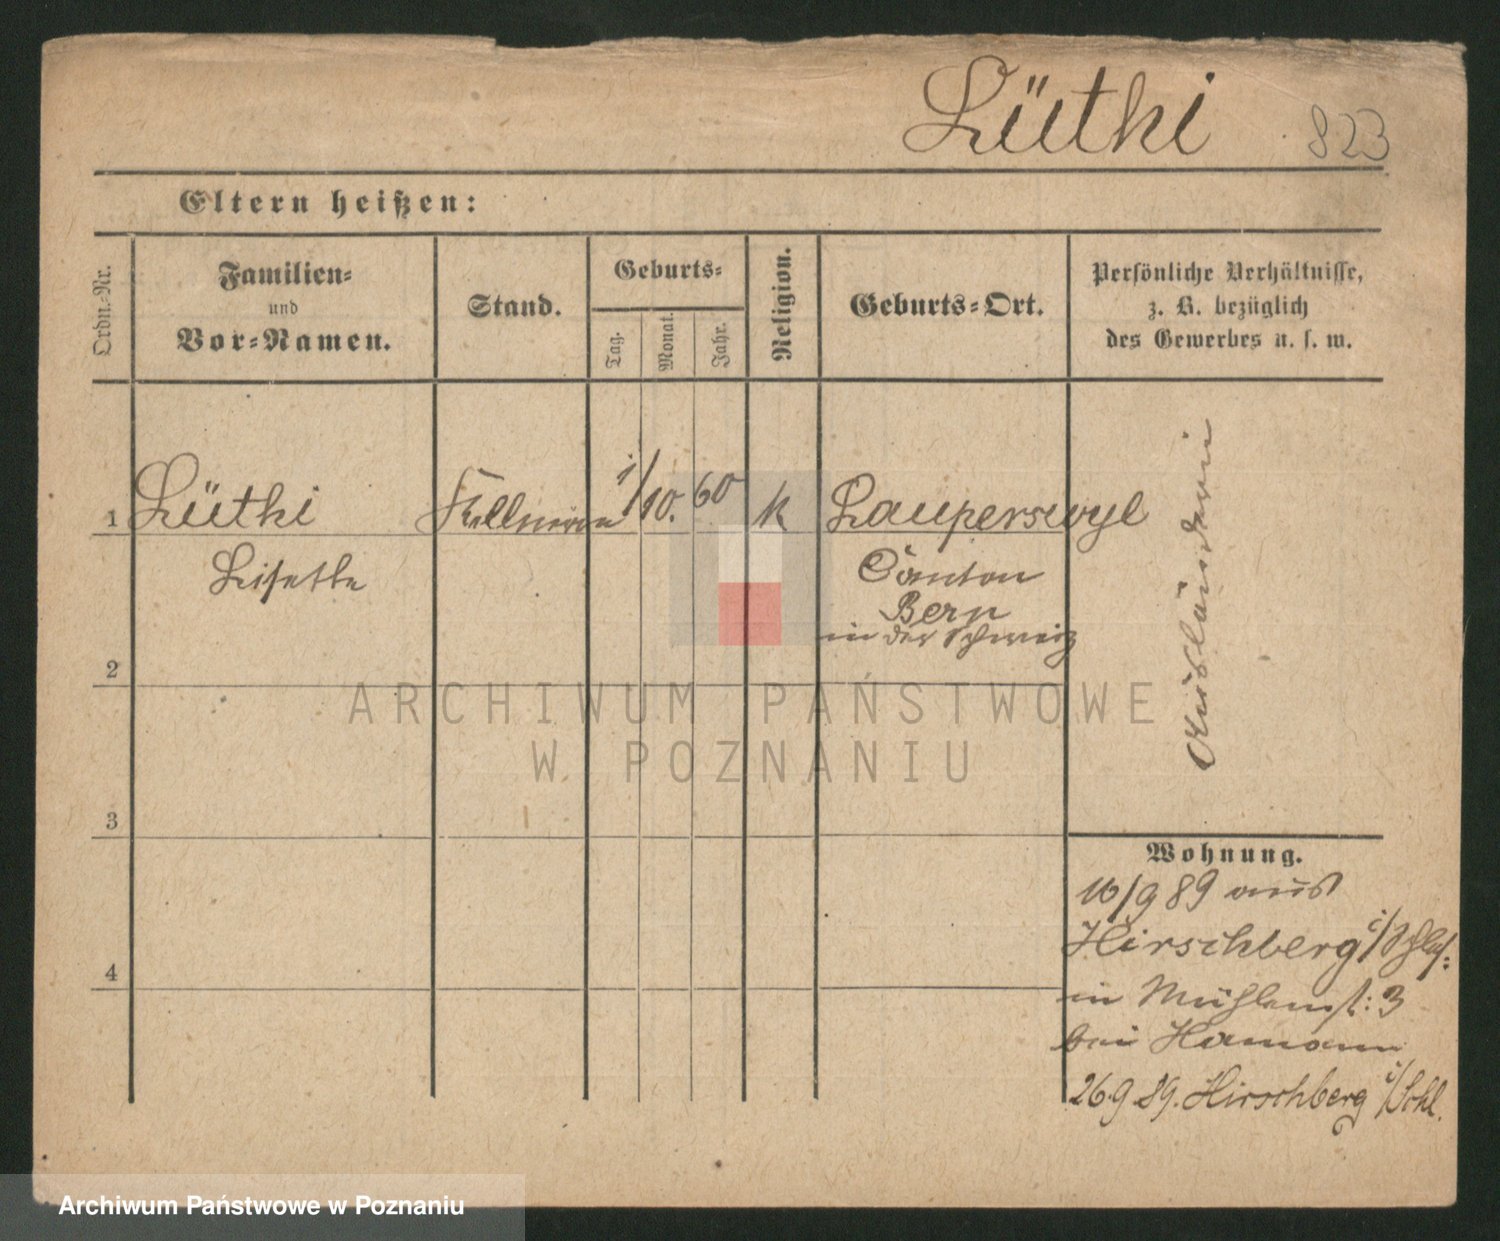 Lüthi 823
Eltern heißen:
Ordn.-Nr.
Familien-
und
Vor-Namen.
Stand.
Geburts-
Tag.
Monat.
Jahr.
Religion.
Geburts-Ort.
Persönliche Verhältnisse,
z. B. bezüglich
des Gewerbes u. s. w.
1 Lüthi Kellnerin 1/10. 60 k Lauperswyl
Lisette
Canton
Bern
in der Schweiz
Ausländerin
2
3
4
Wohnung.
16/9 89 aus
Hirschberg i/Schles:
in Mühlenst: 3
bei Hamann
26.9 89. Hirschberg i/Schl.
ARCHIWUM PAŃSTWOWE
W POZNANIU
Archiwum Państwowe w Poznaniu